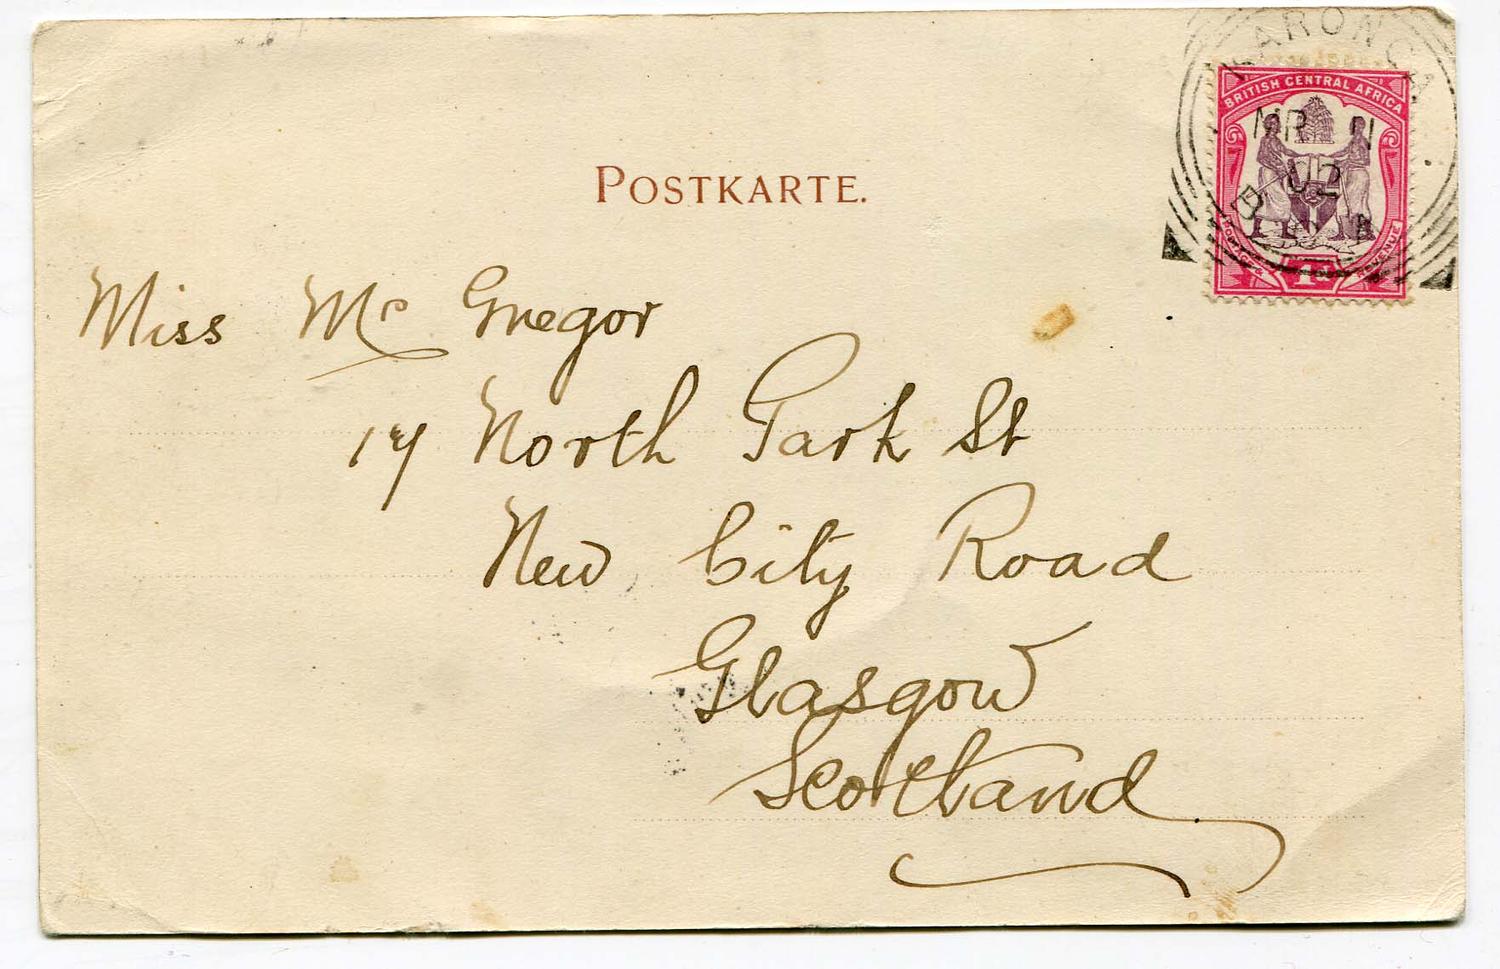 KARONGA
MR 11
02
B.C.A
BRITISH CENTRAL AFRICA
POSTAGE & REVENUE
1d
POSTKARTE.
Miss Mc Gregor
17 North Park St
New City Road
Glasgow
Scotland